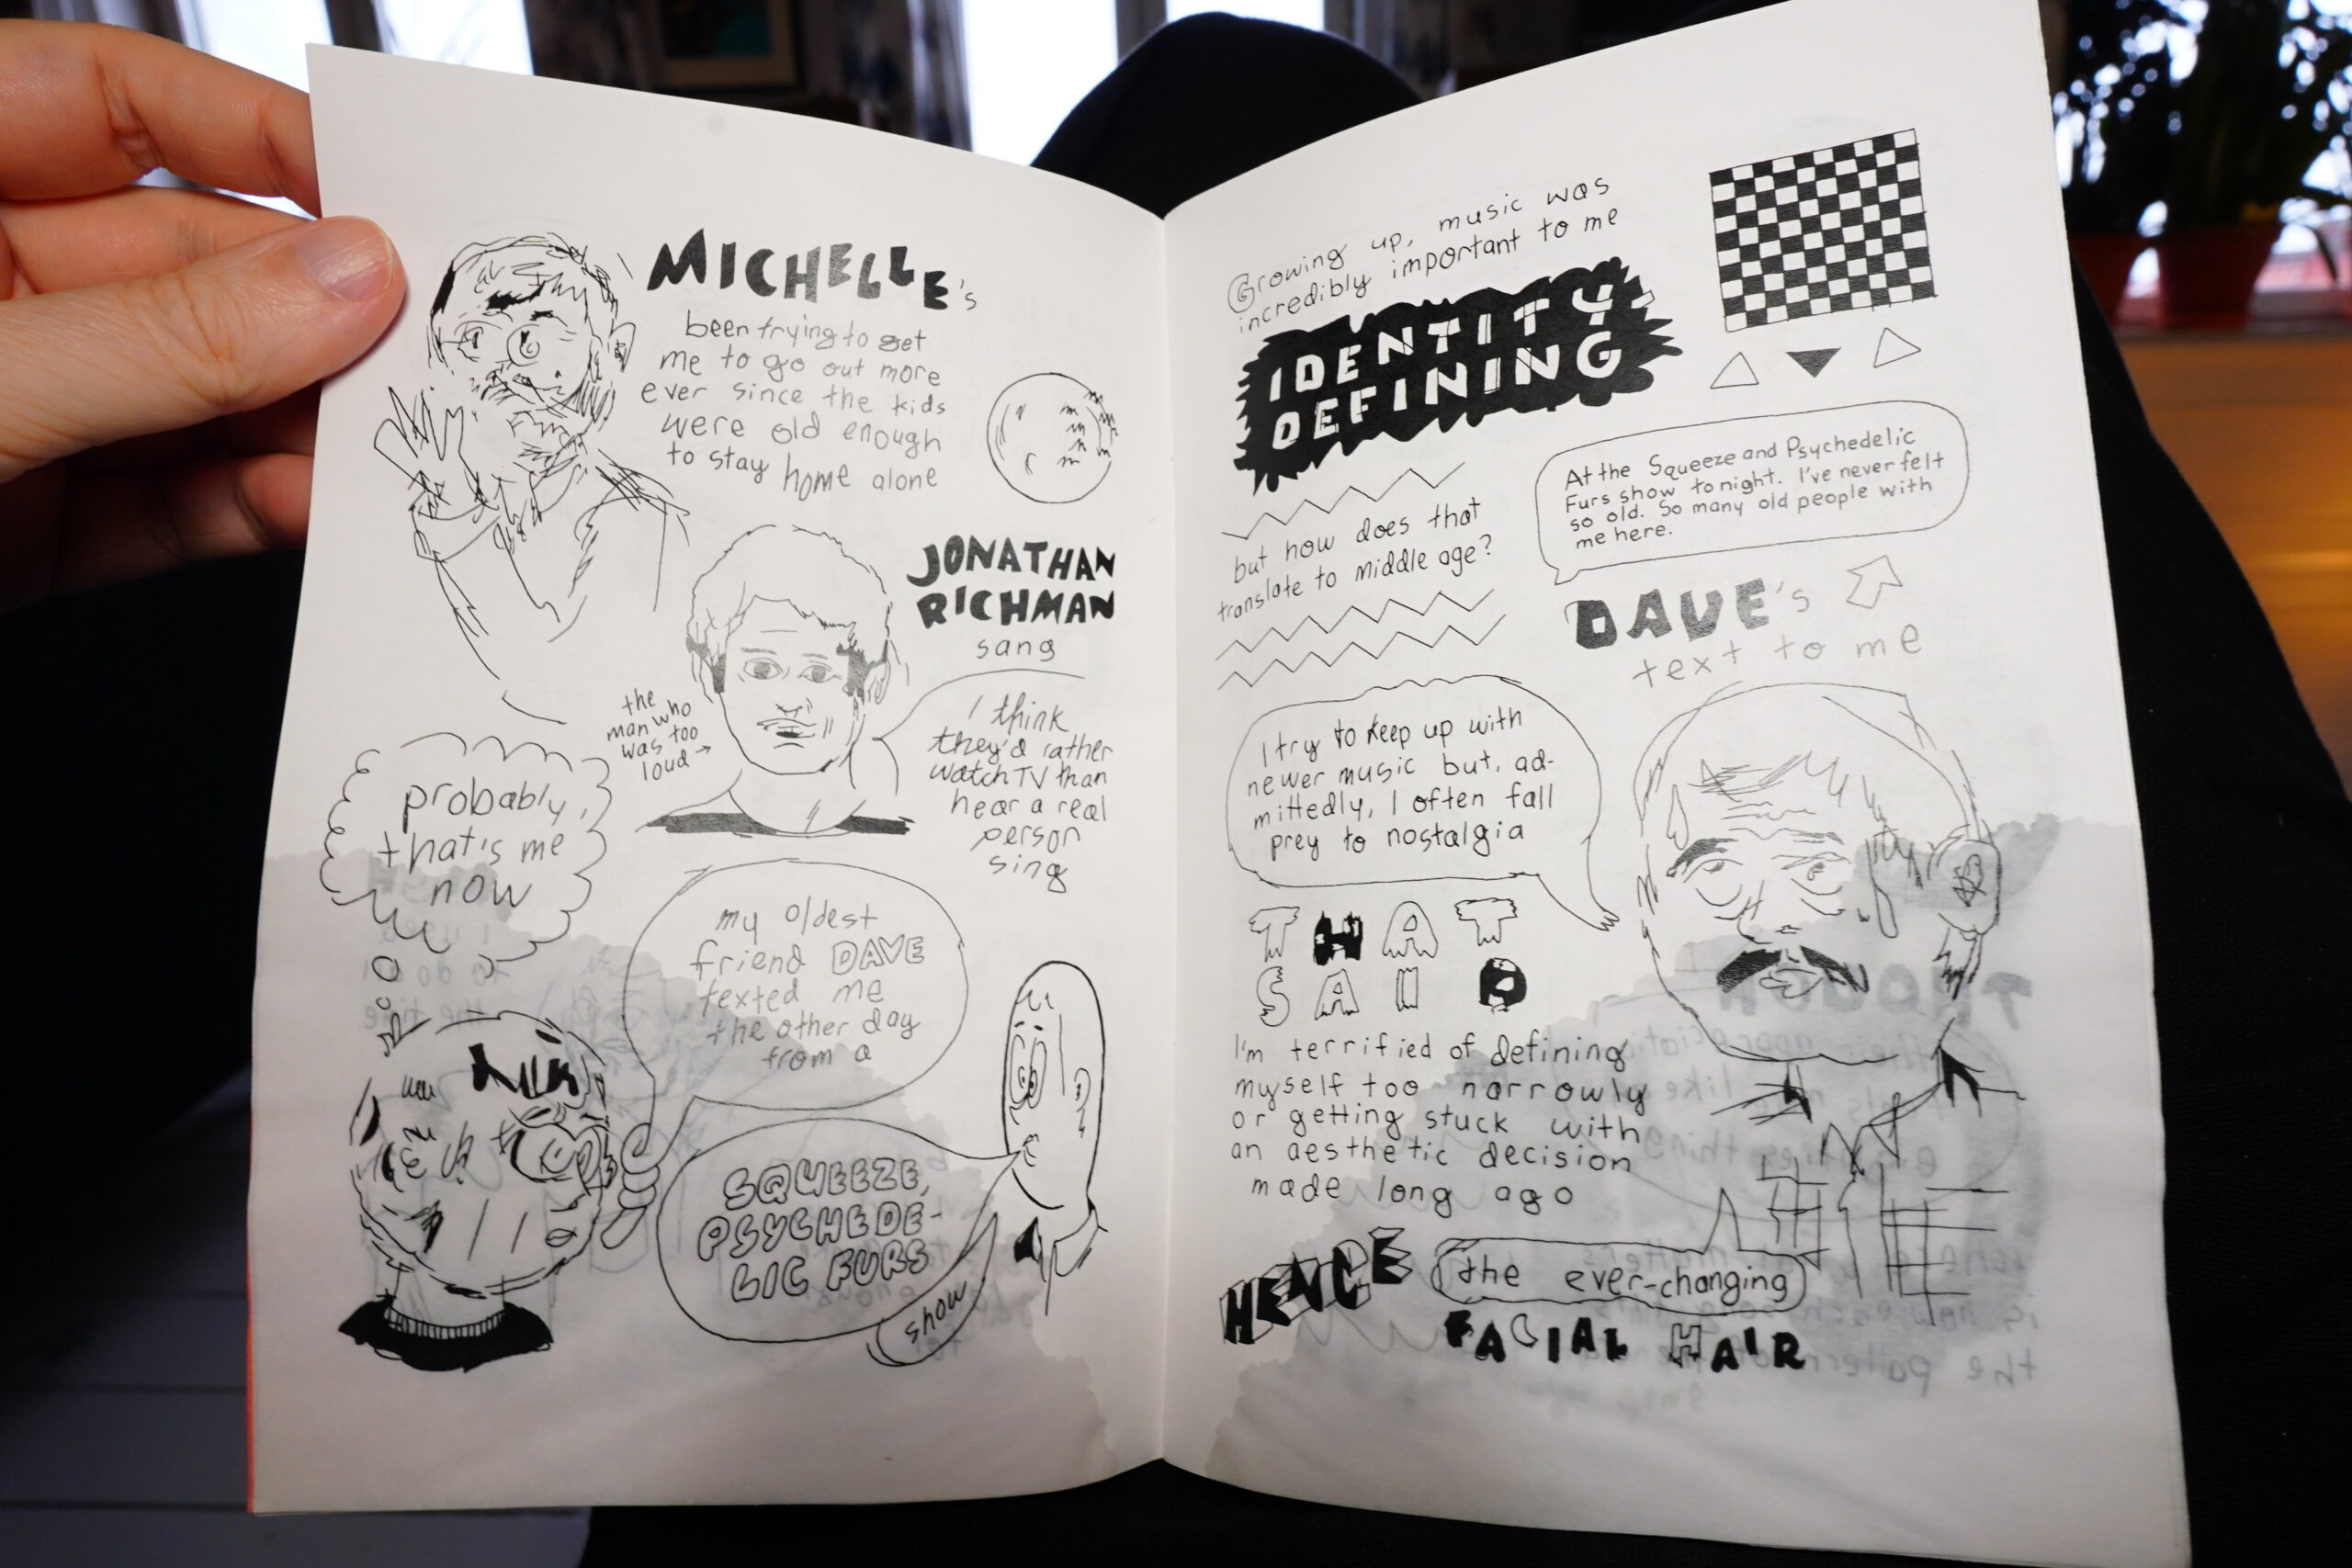 MICHELLE's
been trying to get
me to go out more
ever since the kids
were old enough
to stay home alone
JONATHAN
RICHMAN
sang
the
man who
was too
loud →
I think
they'd rather
watch TV than
hear a real
person
sing
probably,
that's me
now
my oldest
friend DAVE
texted me
the other day
from a
SQUEEZE,
PSYCHEDE-
LIC FURS
show
Growing up, music was
incredibly important to me
IDENTITY
DEFINING
but how does that
translate to middle age?
At the Squeeze and Psychedelic
Furs show tonight. I've never felt
so old. So many old people with
me here.
DAVE's
text to me
I try to keep up with
newer music but, ad-
mittedly, I often fall
prey to nostalgia
THAT
SAID
I'm terrified of defining
myself too narrowly
or getting stuck with
an aesthetic decision
made long ago
HENCE the ever-changing
FACIAL HAIR